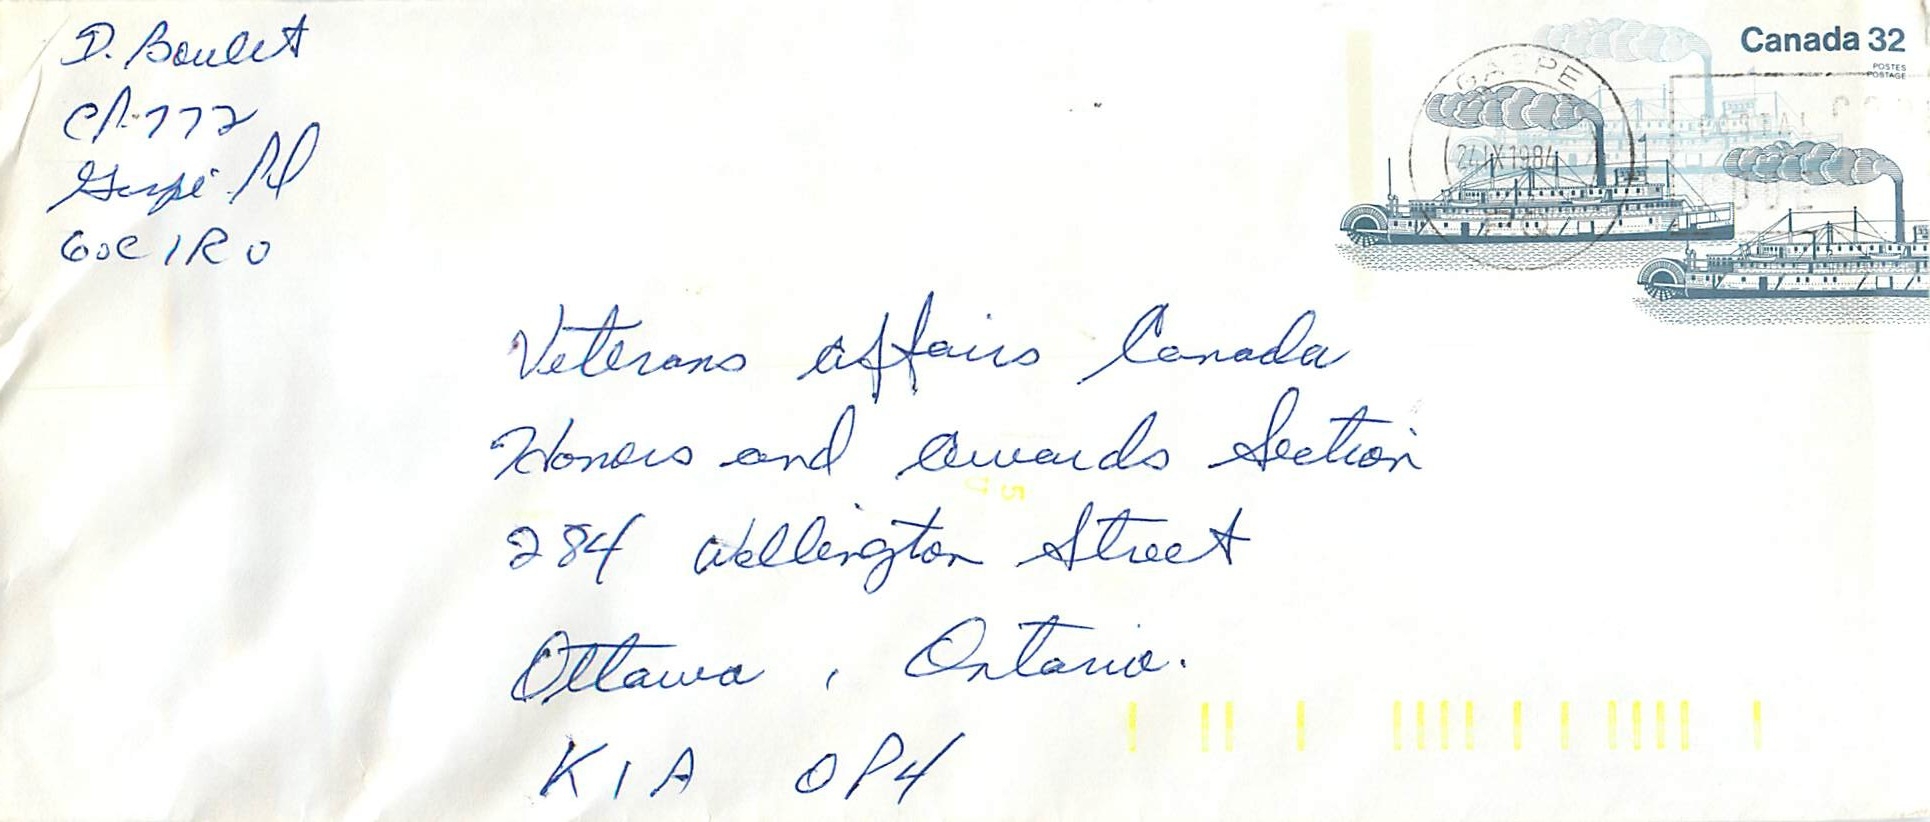 D. Boulet
CP. 772
Gaspé P.Q
G0C 1R0
Canada 32
POSTES
POSTAGE
GASPE
24 IX 1984
PQ
POSTAL CODE
Veterans affairs Canada
Honors and awards Section
284 Wellington Street
Ottawa, Ontario.
K1A 0P4